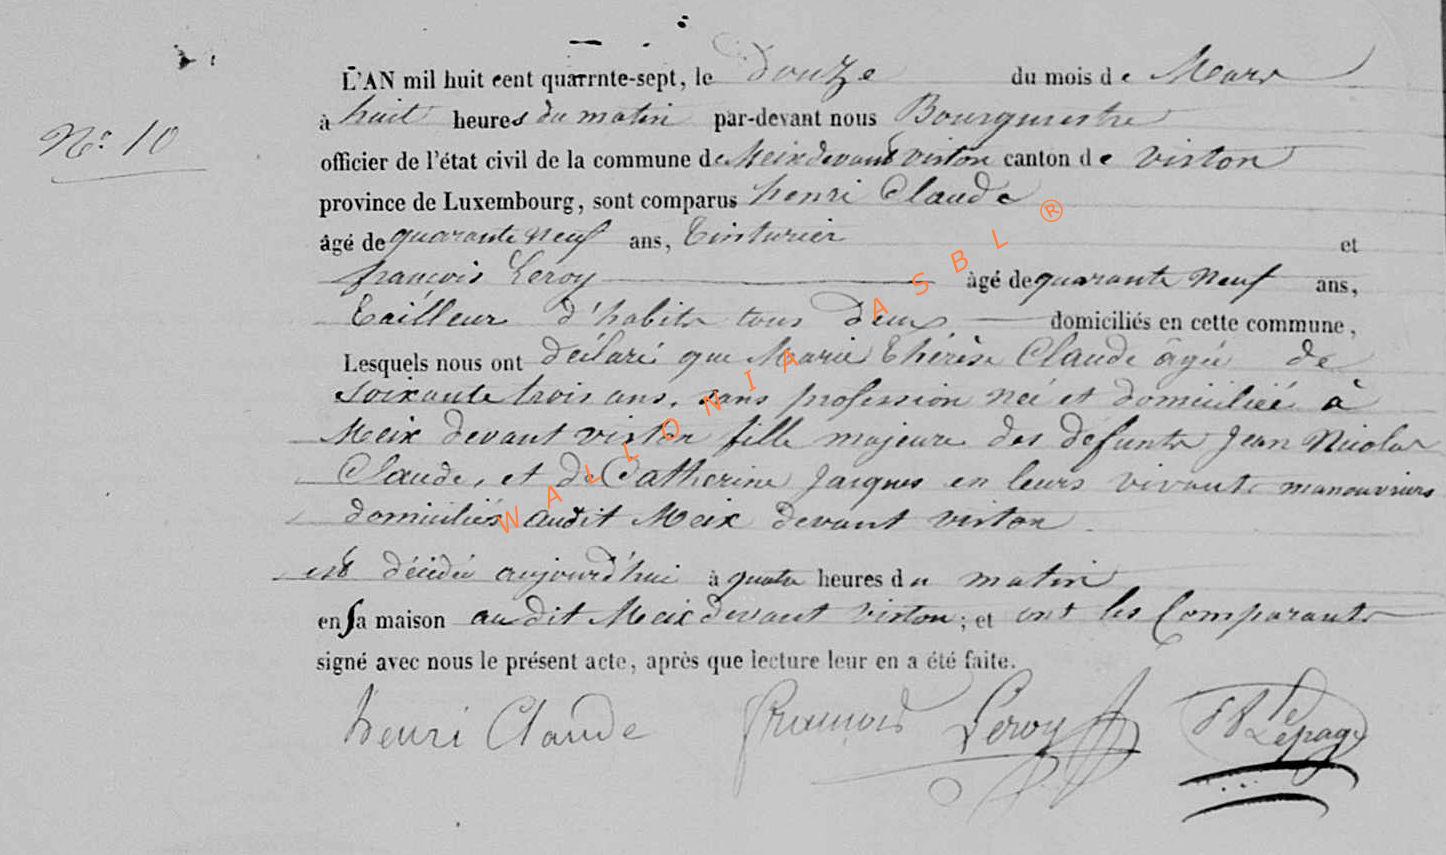 L'AN mil huit cent quarrnte-sept, le douze du mois de Mars
à huit heures du matin par-devant nous Bourgmestre
N.º 10
officier de l'état civil de la commune de Meix devant virton canton de virton
province de Luxembourg, sont comparus henri Claude
âgé de quarante neuf ans, teinturier et
françois Leroy âgé de quarante neuf ans,
tailleur d'habits tous deux domiciliés en cette commune,
Lesquels nous ont déclaré que Marie thérèse Claude âgée de
soixante trois ans, sans profession née et domiciliée à
Meix devant virton fille majeure des défunts Jean Nicolas
Claude, et de Catherine Jacques en leurs vivants manouvriers
domiciliés audit Meix devant virton
est décédée aujourd'hui à quatre heures du matin
en sa maison audit Meix devant virton ; et ont les Comparants
signé avec nous le présent acte, après que lecture leur en a été faite.
henri Claude François Leroy Lepage
WALLONIA ASBL ®